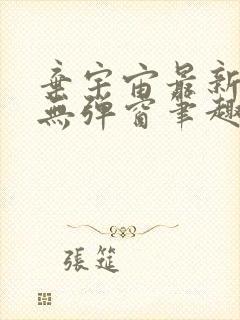 棄宇宙最新
無彈窗筆趣
張筵